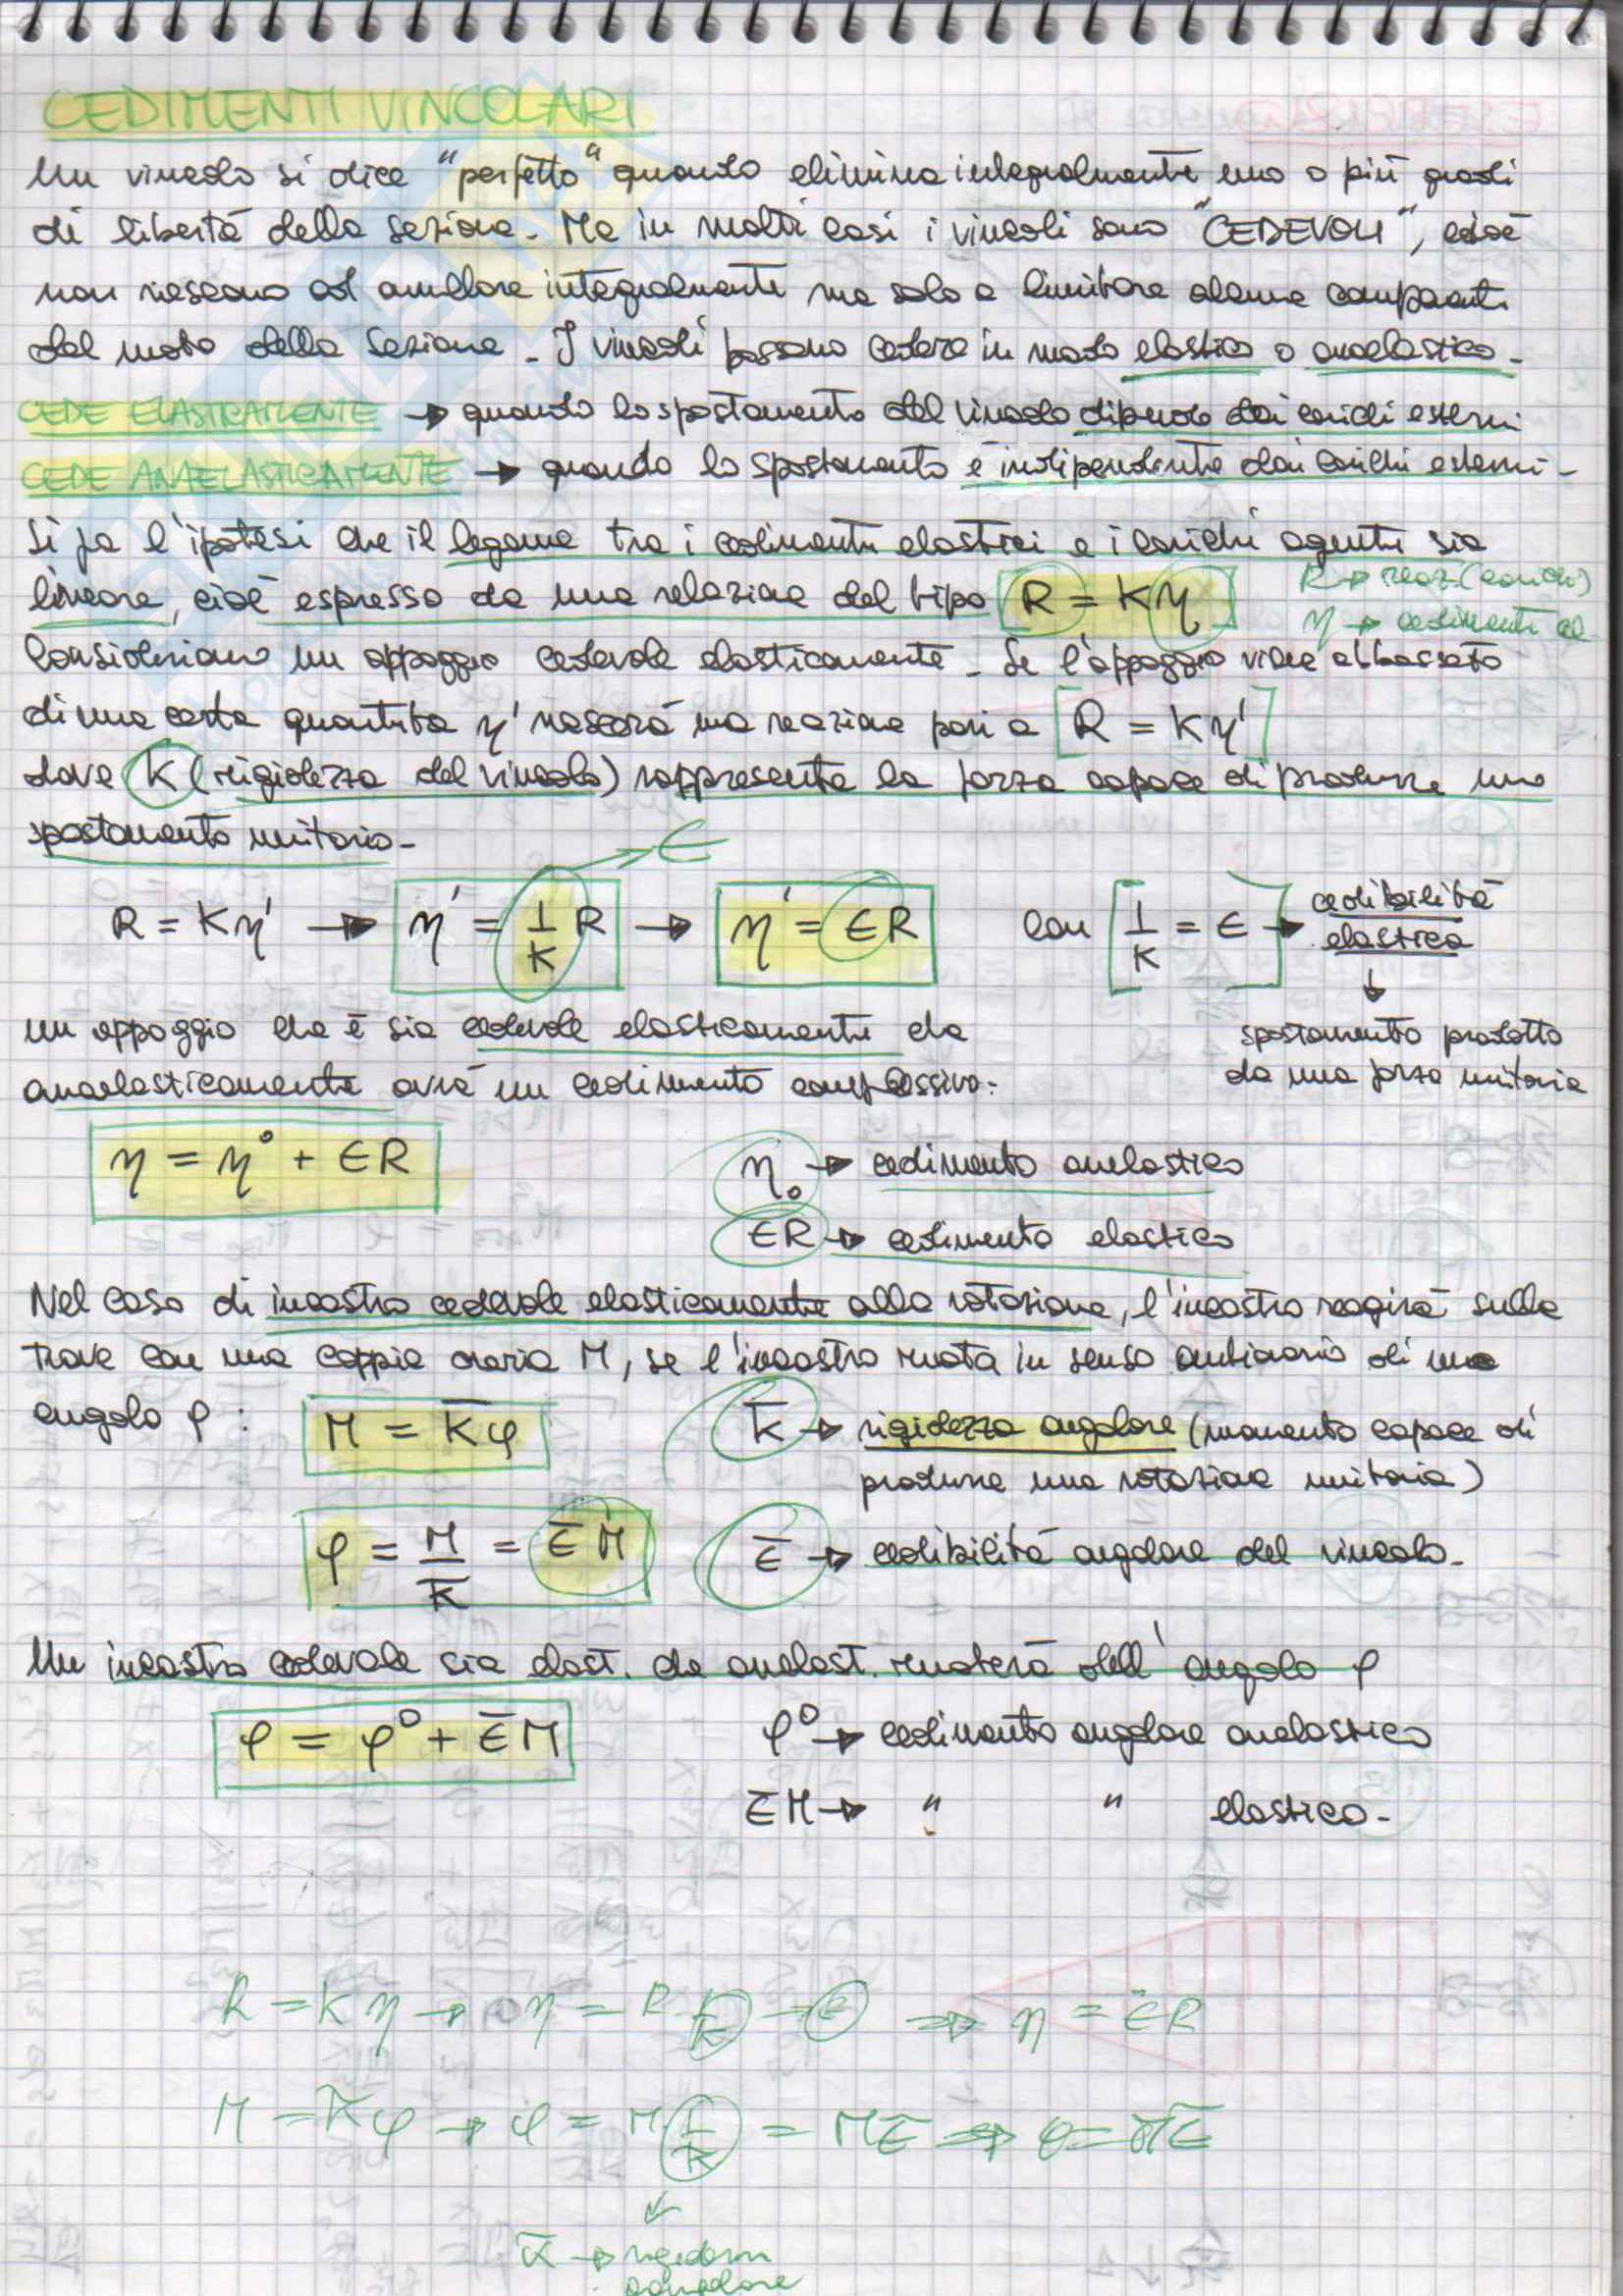 CEDIMENTI VINCOLARI
Un vincolo si dice "perfetto" quando elimina integralmente uno o più gradi
di libertà della sezione. Ma in molti casi i vincoli sono "CEDEVOLI", cioè
non riescono ad annullare integralmente ma solo a limitare alcune componenti
del moto della sezione. I vincoli possono cedere in modo elastico o anaelastico.
CEDE ELASTICAMENTE → quando lo spostamento del vincolo dipende dai carichi esterni
CEDE ANAELASTICAMENTE → quando lo spostamento è indipendente dai carichi esterni.
Si fa l'ipotesi che il legame tra i cedimenti elastici e i carichi agenti sia
lineare, cioè espresso da una relazione del tipo R = Kη
R → reaz. (carichi)
η → cedimenti el
Consideriamo un appoggio cedevole elasticamente. Se l'appoggio viene abbassato
di una certa quantità η' nascerà una reazione pari a [R = Kη']
dove K (rigidezza del vincolo) rappresenta la forza capace di produrre uno
spostamento unitario.
→ ϵ
R = Kη' → η' = 1/K R → η' = ϵR con [1/K = ϵ] → cedibilità elastica
↓
spostamento prodotto
da una forza unitaria
un appoggio che è sia cedevole elasticamente che
anaelasticamente avrà un cedimento complessivo:
η = η° + ϵR
η₀ → cedimento anelastico
ϵR → cedimento elastico
Nel caso di incastro cedevole elasticamente alla rotazione, l'incastro reagirà sulla
trave con una coppia oraria M, se l'incastro ruota in senso antiorario di uno
angolo φ : M = K̄φ
K̄ → rigidezza angolare (momento capace di
produrre una rotazione unitaria)
φ = M/K̄ = ϵ̄M
ϵ̄ → cedibilità angolare del vincolo.
Un incastro cedevole sia elast. che anelast. ruoterà dell'angolo φ
φ = φ° + ϵ̄M
φ° → cedimento angolare anelastico
ϵ̄M → " " elastico.
R = Kη → η = R 1/K = ϵ ⇒ η = ϵR
M = K̄φ → φ = M 1/K̄ = Mϵ̄ ⇒ φ = Mϵ̄
K̄ → rigidezza
angolare